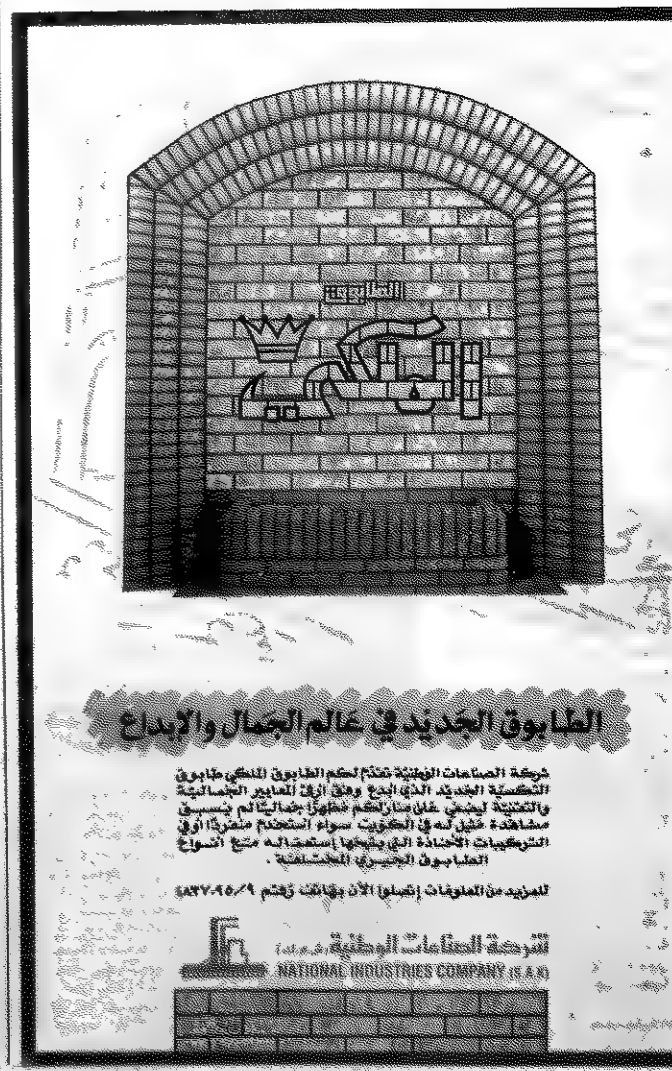 الطابوق
الملكي
الطابوق الجديد في عالم الجمال والإبداع
شركة الصناعات الوطنية تقدم لكم الطابوق الملكي طابوق
التكسية الجديد الذي أبدع وفق أرقى المعايير الجمالية
والتقنية ليضفي على منازلكم مظهرًا جماليًا لم يسبق
مشاهدة مثيل له في الكويت سواء استخدم منفردًا أو في
التركيبات الأخاذة التي يتيحها إستعماله مع أنواع
الطابوق الجيري المختلفة .
للمزيد من المعلومات إتصلوا الآن بهاتف رقم ٤٨٣٧٠٩٥/٩
شركة الصناعات الوطنية (ش.م.ك)
NATIONAL INDUSTRIES COMPANY (S.A.K)